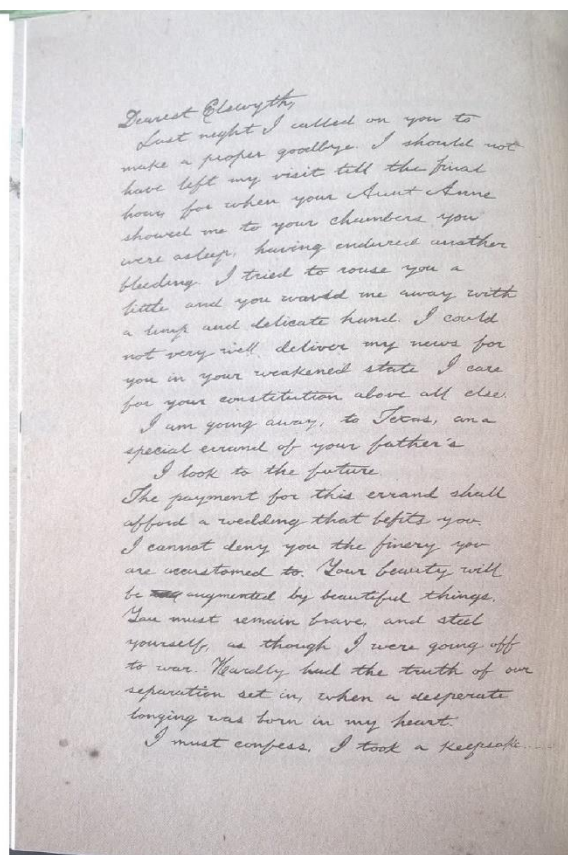 Dearest Elswyth,
Last night I called on you to
make a proper goodbye. I should not
have left my visit till the final
hour, for when your Aunt Anne
showed me to your chambers you
were asleep, having endured another
bleeding. I tried to rouse you a
little and you waved me away with
a limp and delicate hand. I could
not very well deliver my news for
you in your weakened state I care
for your constitution above all else.
I am going away, to Texas, on a
special errand of your father's
I look to the future.
The payment for this errand shall
afford a wedding that befits you.
I cannot deny you the finery you
are accustomed to. Your beauty will
be augmented by beautiful things.
You must remain brave, and steel
yourself, as though I were going off
to war. Hardly had the truth of our
separation set in, when a desperate
longing was born in my heart.
I must confess, I took a keepsake